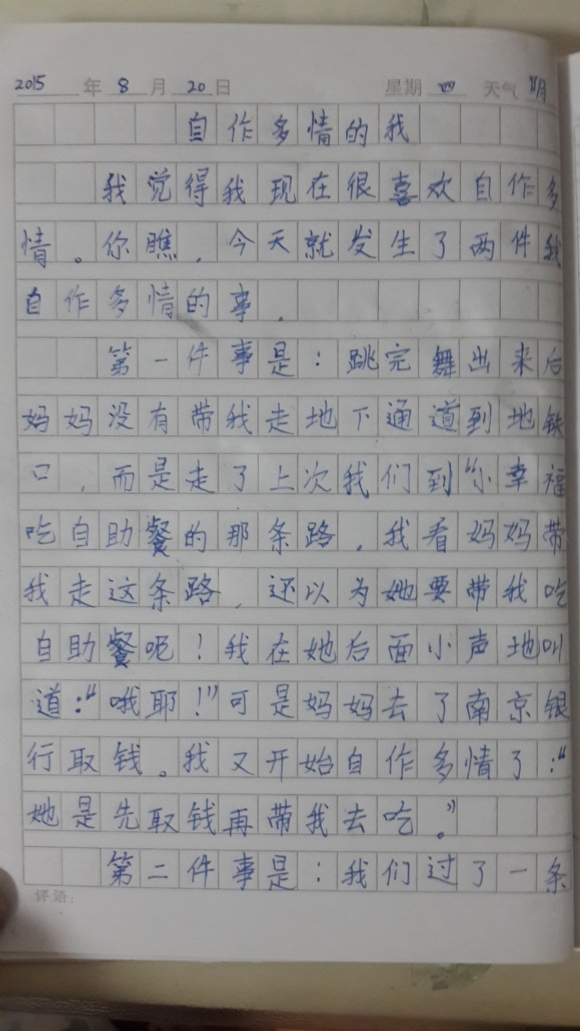 2015 年 8 月 20 日 星期 四 天气 阴
自作多情的我
我觉得我现在很喜欢自作多
情。你瞧,今天就发生了两件我
自作多情的事.
第一件事是:跳完舞出来后
妈妈没有带我走地下通道到地铁
口,而是走了上次我们到“小幸福
吃自助餐的那条路,我看妈妈带
我走这条路,还以为她要带我吃
自助餐呢!我在她后面小声地叫
道:“哦耶!”可是妈妈去了南京银
行取钱。我又开始自作多情了:“
她是先取钱再带我去吃。”
第二件事是:我们过了一条
评语: